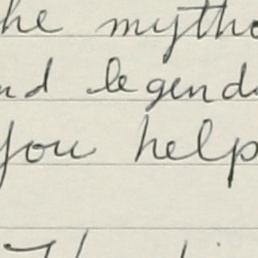 he mytho
nd legends
you help